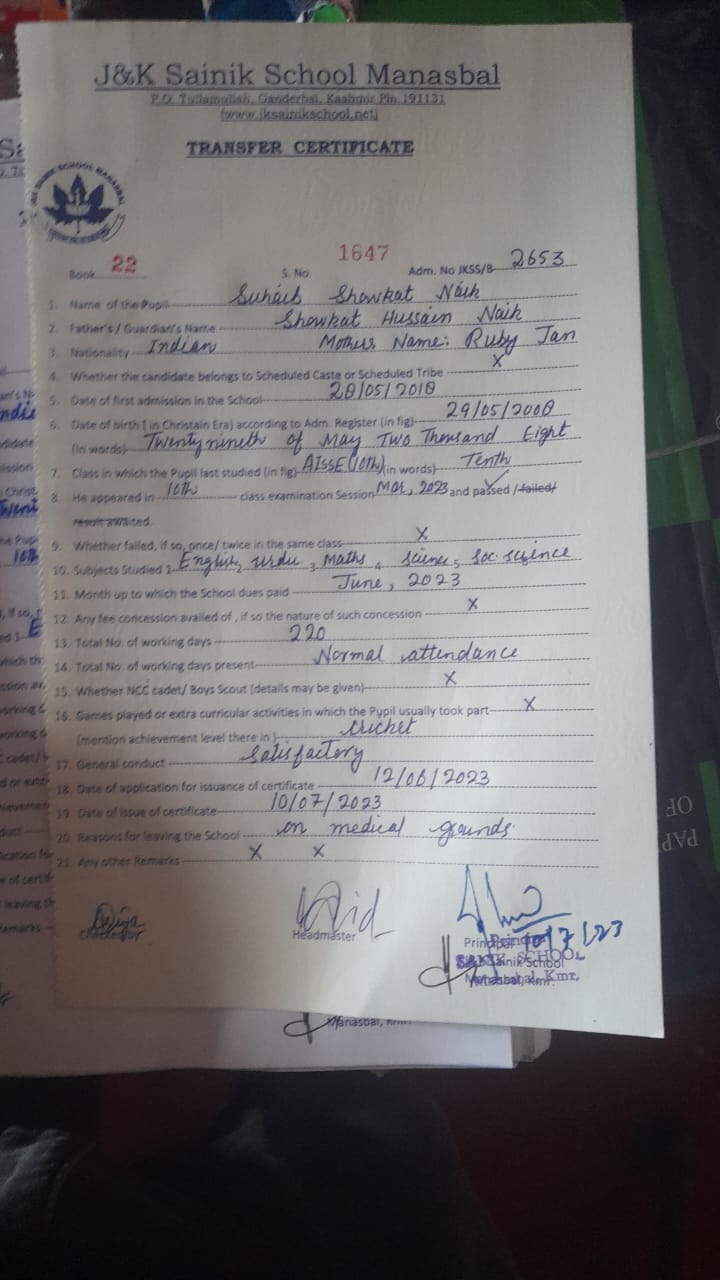 J&K Sainik School Manasbal
P.O. Tullamullah, Ganderbal, Kashmir Pin.191131
(www.jksainikschool.net)
TRANSFER CERTIFICATE
Book 22 S. No. 1647 Adm. No JKSS/B 2653
1. Name of the Pupil Suhaib Showkat Naik
2. Father's / Guardian's Name Showkat Hussain Naik
3. Nationality Indian Mothers Name: Ruby Jan
4. Whether the candidate belongs to Scheduled Caste or Scheduled Tribe X
5. Date of first admission in the School 28/05/2018
6. Date of birth ( in Christain Era) according to Adm. Register (in fig) 29/05/2008
(In words) Twenty nineth of May Two Thousand Eight
7. Class in which the Pupil last studied (in fig) AISSE (10th) (in words) Tenth
8. He appeared in 10th class examination Session Mar, 2023 and passed / failed/
result awaited.
9. Whether failed, if so, once/ twice in the same class X
10. Subjects Studied 1 English, 2 urdu, 3 Maths, 4 science, 5 Soc. science
11. Month up to which the School dues paid June, 2023
12. Any fee concession availed of , if so the nature of such concession X
13. Total No. of working days 220
14. Total No. of working days present Normal attendance
15. Whether NCC cadet/ Boys Scout (details may be given) X
16. Games played or extra curricular activities in which the Pupil usually took part X
(mention achievement level there in ) cricket
17. General conduct satisfactory
18. Date of application for issuance of certificate 12/06/2023
19. Date of issue of certificate 10/07/2023
20. Reasons for leaving the School on medical grounds.
21. Any other Remarks X X
Headmaster
Principal 10/7/23
Sainik School
Manasbal, Kmr.
Manasbal,